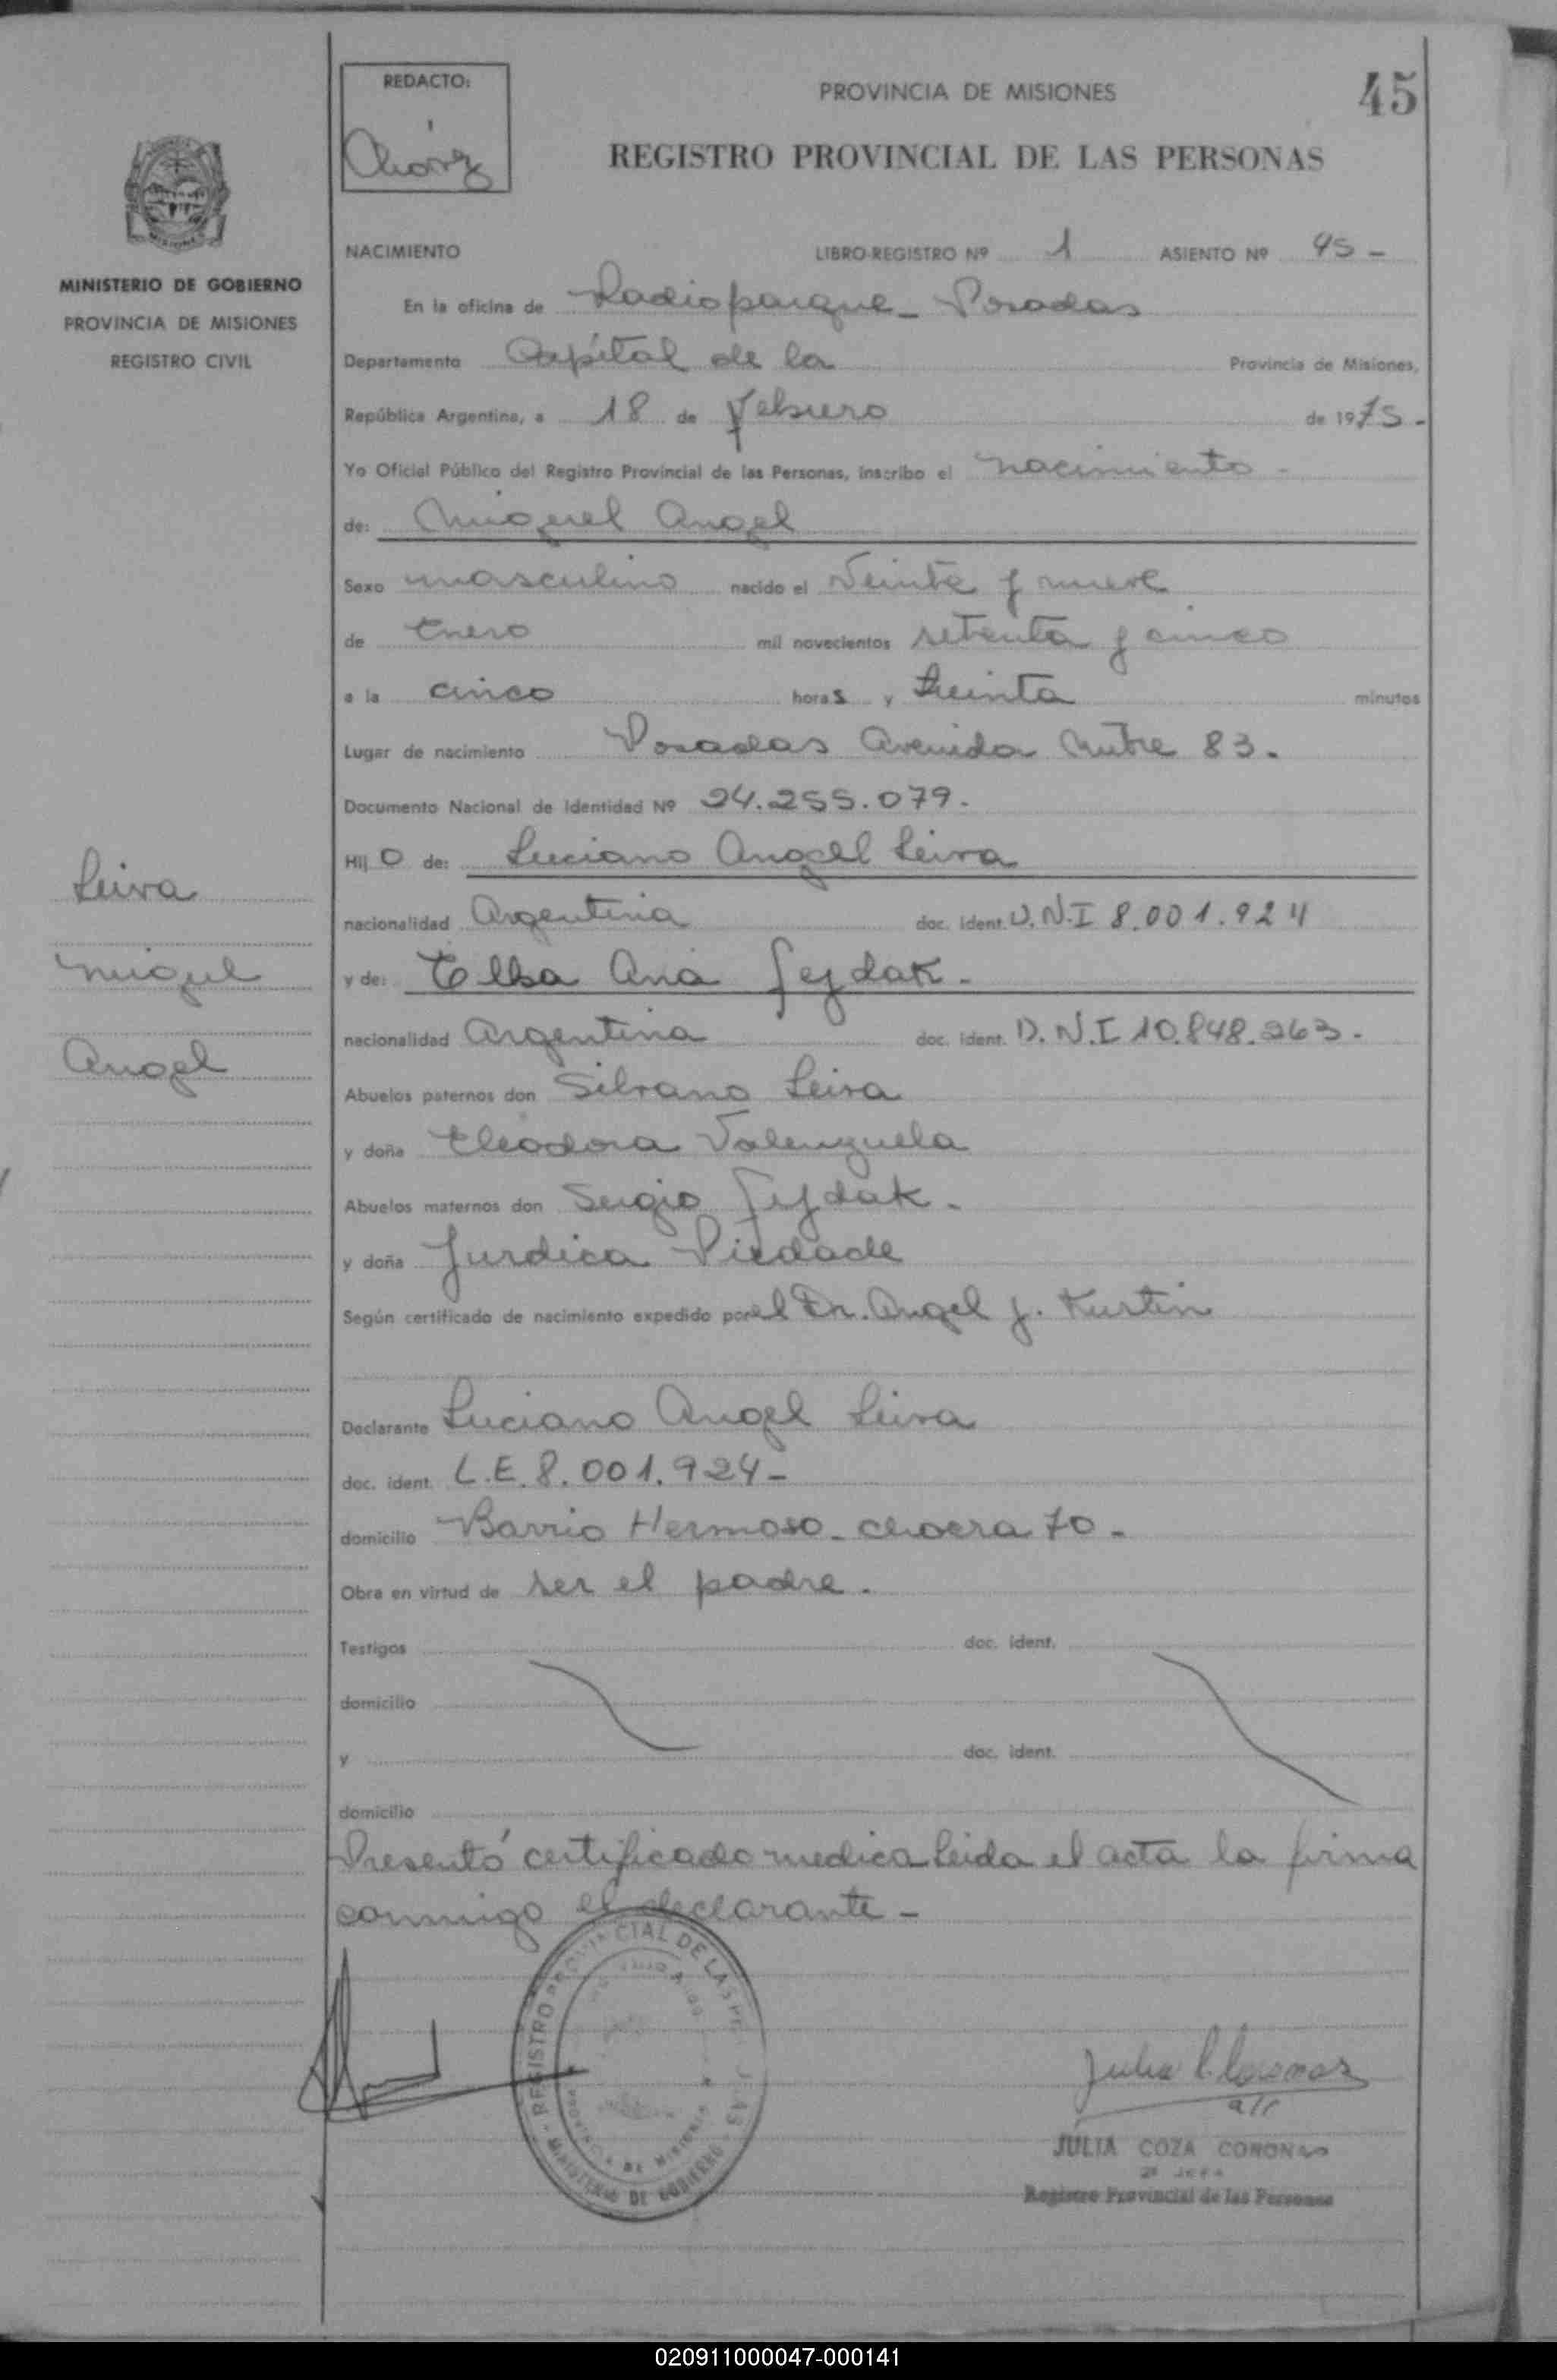 REDACTO:
PROVINCIA DE MISIONES
45
REGISTRO PROVINCIAL DE LAS PERSONAS
MINISTERIO DE GOBIERNO
PROVINCIA DE MISIONES
REGISTRO CIVIL
NACIMIENTO LIBRO-REGISTRO Nº 1 ASIENTO Nº 45 -
En la oficina de Radioparque - Posadas
Departamento Capital de la Provincia de Misiones,
República Argentina, a 18 de Febrero de 1975 -
Yo Oficial Público del Registro Provincial de las Personas, inscribo el nacimiento -
de: Miguel Angel
Sexo masculino nacido el Veinte y nueve
de Enero mil novecientos setenta y cinco
a la cinco horas y treinta minutos
Lugar de nacimiento Posadas Avenida Mitre 83.
Documento Nacional de Identidad Nº 24.255.079.
Hijo de: Luciano Angel Leiva
nacionalidad Argentina doc. ident. D.N.I 8.001.924
y de: Elba Ana Seydak.
nacionalidad Argentina doc. ident. D.N.I 10.848.263.
Abuelos paternos don Silvano Leiva
y doña Eleodora Valenzuela
Abuelos maternos don Sergio Seydak.
y doña Jurdica Piedade
Según certificado de nacimiento expedido por el Dr. Angel J. Kustin
Declarante Luciano Angel Leiva
doc. ident. L.E. 8.001.924-
domicilio Barrio Hermoso - chacra 70 -
Obra en virtud de ser el padre.
Testigos doc. ident.
domicilio
y doc. ident.
domicilio
Presentó certificado medica leida el acta la firma
conmigo el declarante -
Leiva
Miguel
Angel
REGISTRO PROVINCIAL DE LAS
MINISTERIO DE GOBIERNO
PROVINCIA DE MISIONES
JULIA COZA CORONAS
Registro Provincial de las Personas
020911000047-000141